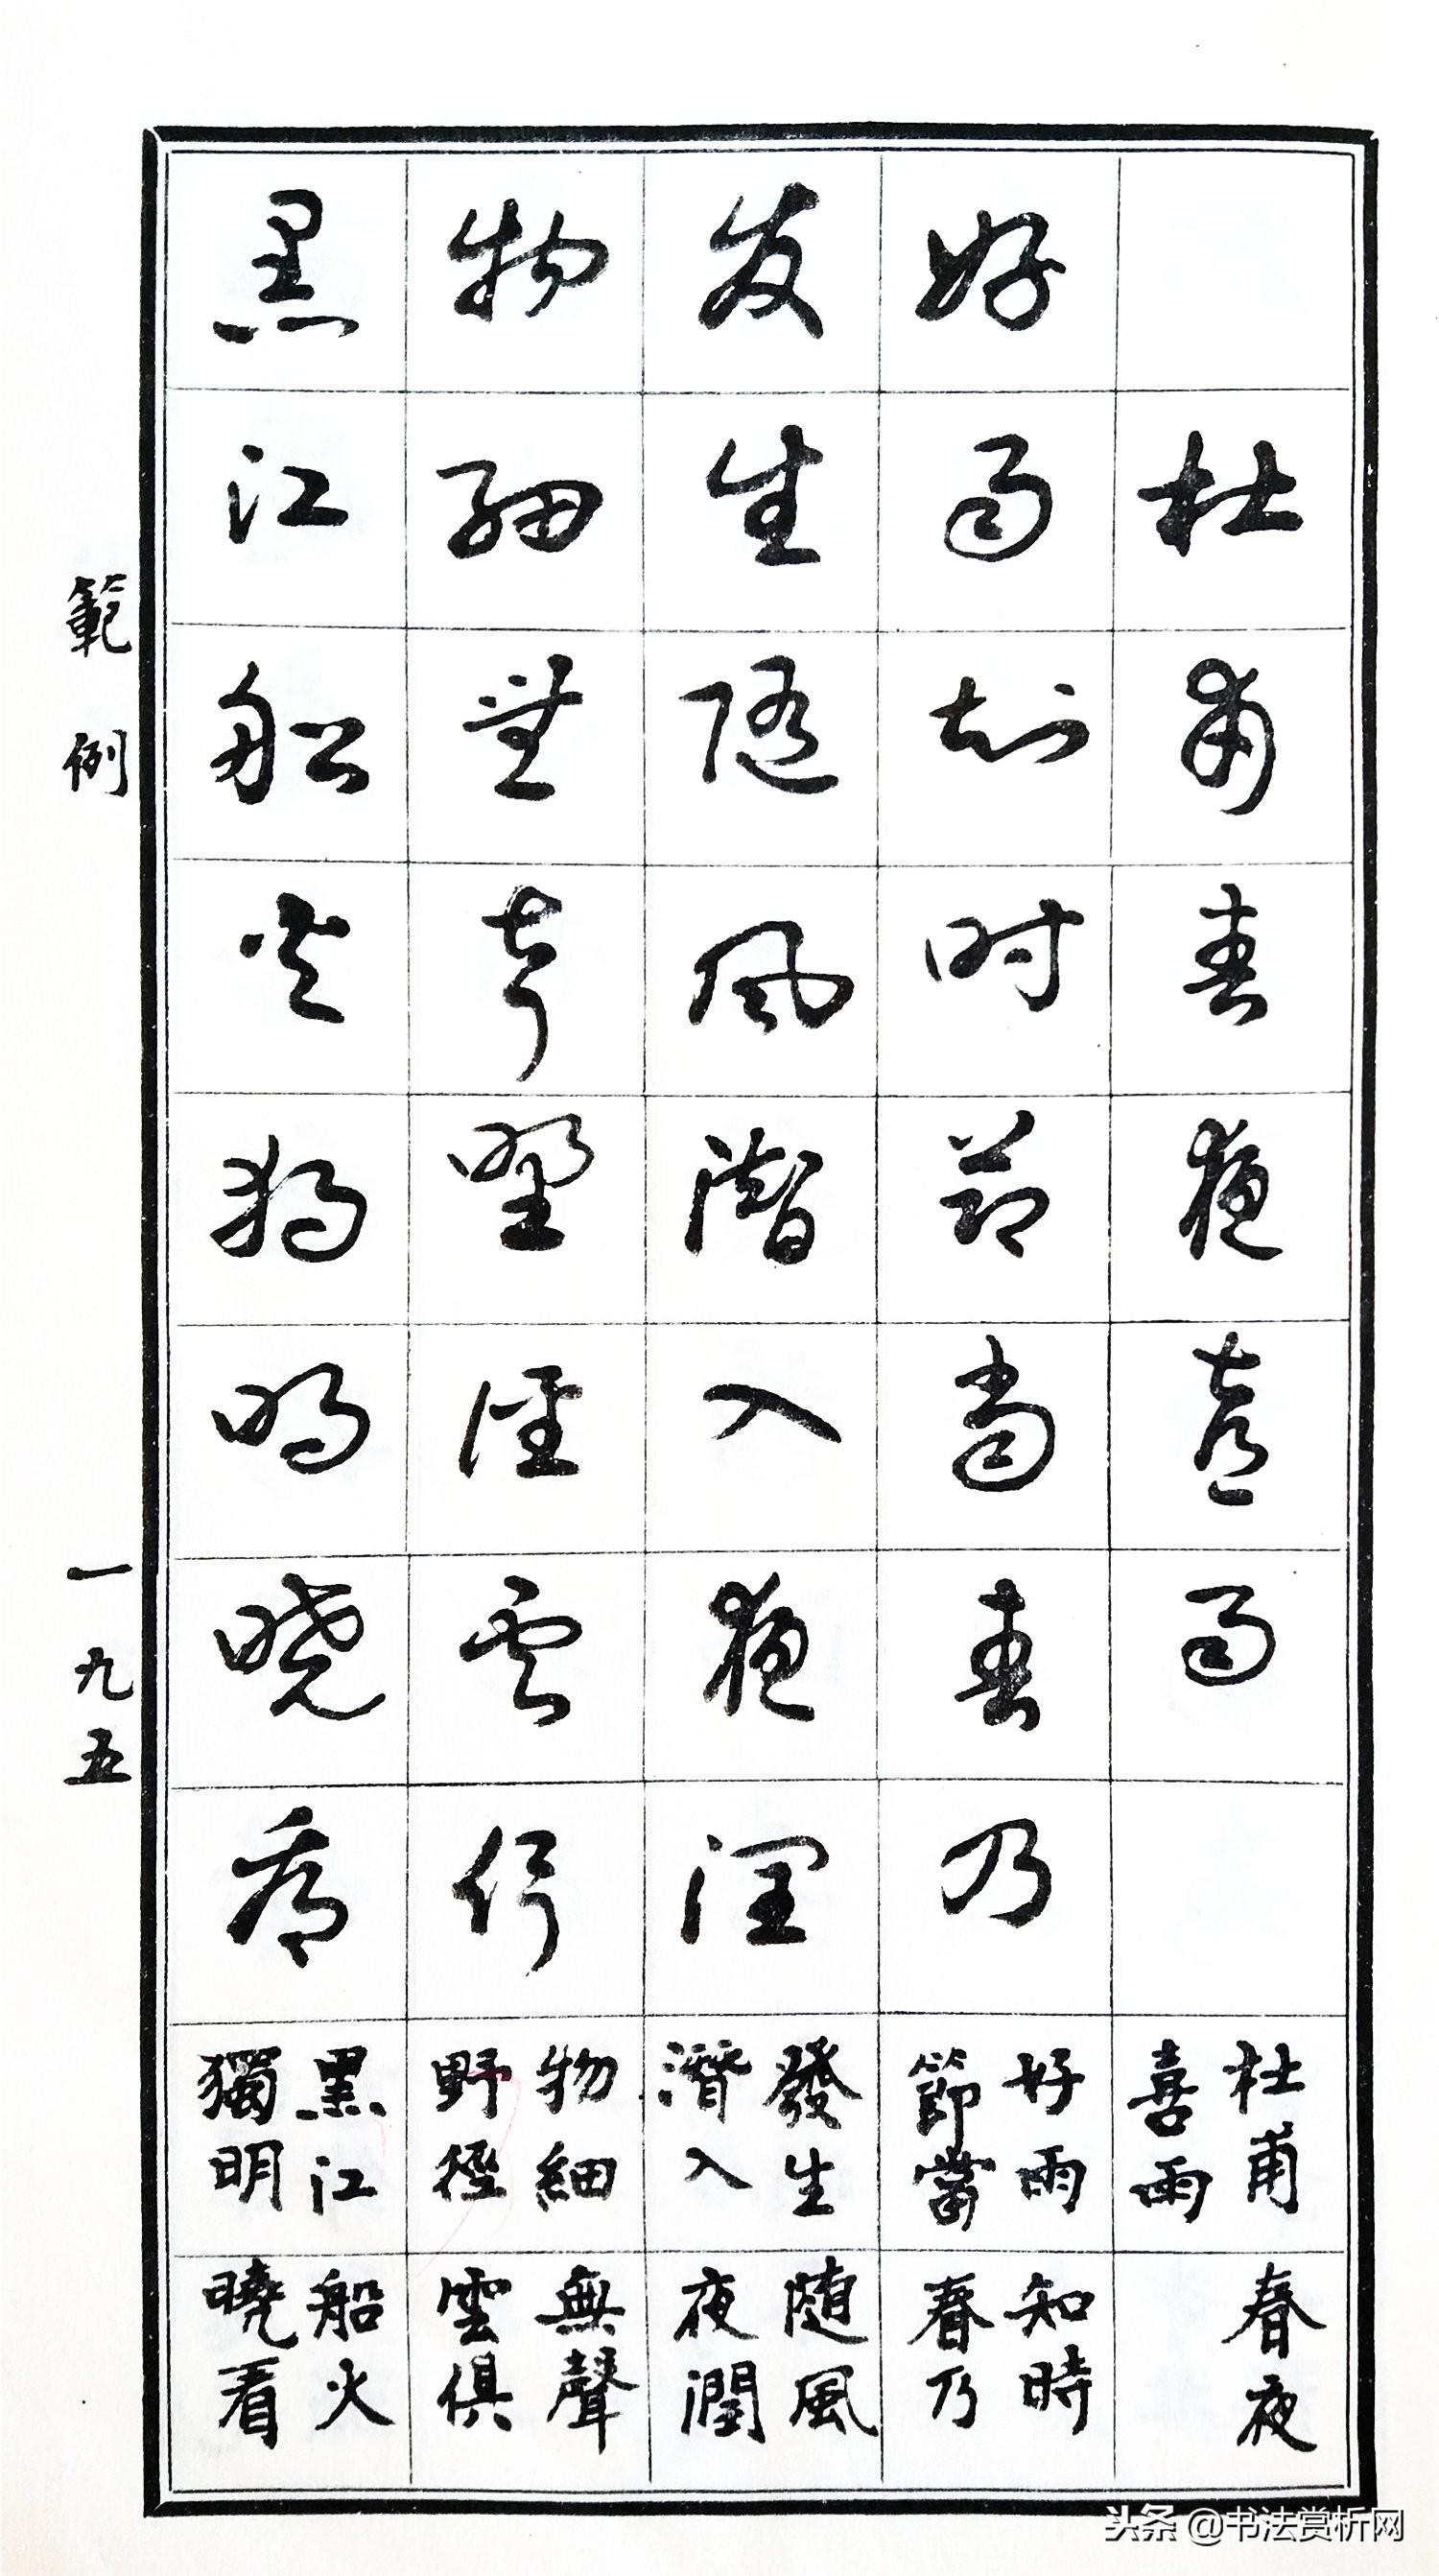 杜甫春夜喜雨
好雨知時節當春乃
發生隨風潛入夜潤
物細無聲野徑雲俱
黑江船火獨明曉看
杜甫
喜雨
春夜
好雨
節當
知時
春乃
發生
潛入
随風
夜潤
物細
野徑
無聲
雲俱
黑江
獨明
船火
曉看
範例
一九五
头条 @书法赏析网